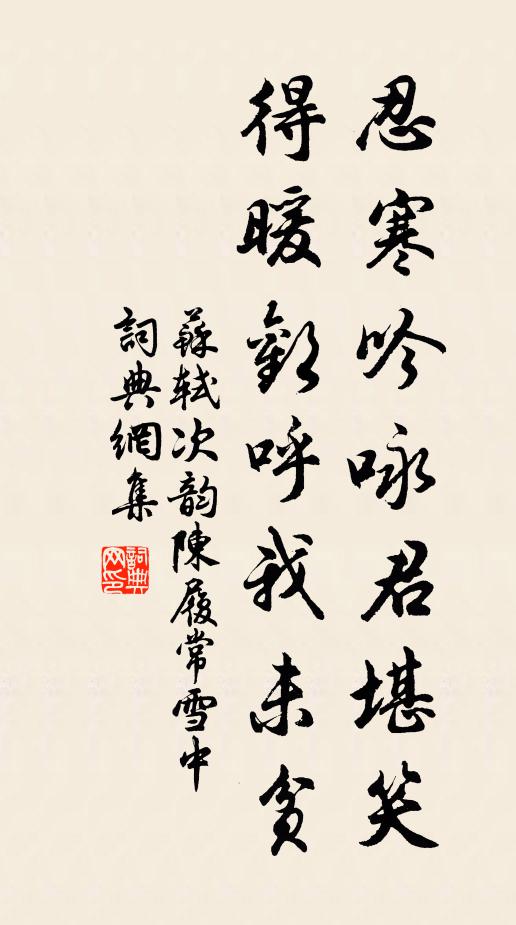 忍寒吟咏君堪笑
得暖歡呼我未貧
蘇軾次韵陳履常雪中
詞典網集
詞典网印